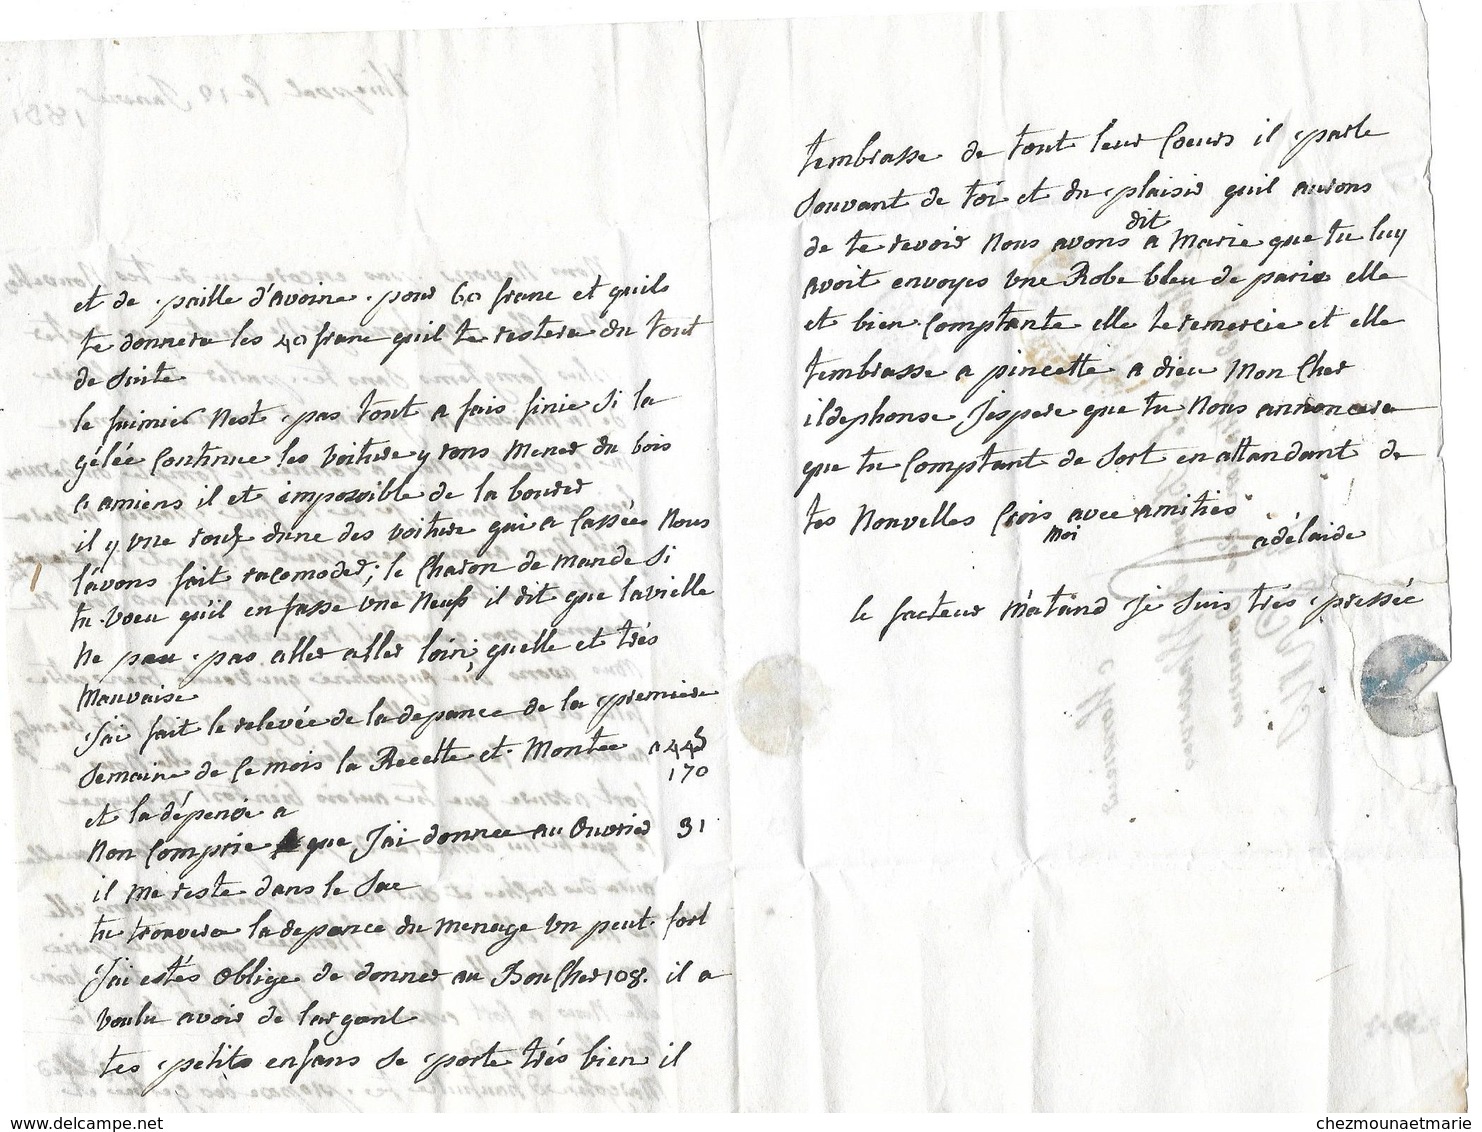 et de paille d'avoine pour 60 franc et quils
te donnera les 40 franc quil te restera du tout
de suite
le fuimier Nest pas tout a fais finie Si la
gélée continue les voiture y rons mener du bois
a amiens il et impossible de la bourer
il y une roux dune des voiture qui a Cassée Nous
l'avons fait racomoder, le Charon de mande Si
tu voeu quil en fasse une Neuf il dit que la vielle
Ne peu pas aller aller loin, quelle et trés
Mauvaise
J'ai fait le relevée de la depance de la premiere
Semaine de Ce mois la Recette et Montee a 445
170
et la dépense a
Non Comprie que J'ai donnee au Ouvrier 31
il me reste dans le Sac
tu trouvera la depance du menage un peut fort
J'ai estés Oblige de donner au BouCher 108. il a
voulu avoir de l'argant
tes petits enfans Se porte trés bien il
tembrasse de tout leur Coeurs il parle
Souvant de toi et du plaisir quil aurons
de te revoir Nous avons dit a Marie que tu luy
avoit envoyes une Robe bleu de paris elle
et bien Comptante elle te remercie et elle
tembrasse a pincette a dieu Mon Cher
ildephonse J'espere que tu Nous annoncera
que tu Comptant de Sort en attandant de
tes Nouvelles Crois moi avec amitiés
adélaide
le facteur M'atand Je Suis trés pressée
Thiepval le 19 Janvier
1831
chezmounaetmarie